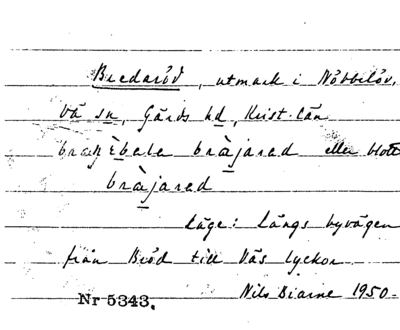 Bredaröd, utmark i Nöbbelöv,
Vä sn, Gärds hd, Krist. län
Èbala bràjarad eller blott
bràjarad
Läge: Längs byvägen
från Bröd till Väs lyckor
Nils Biarne 1950.
Nr 5343.